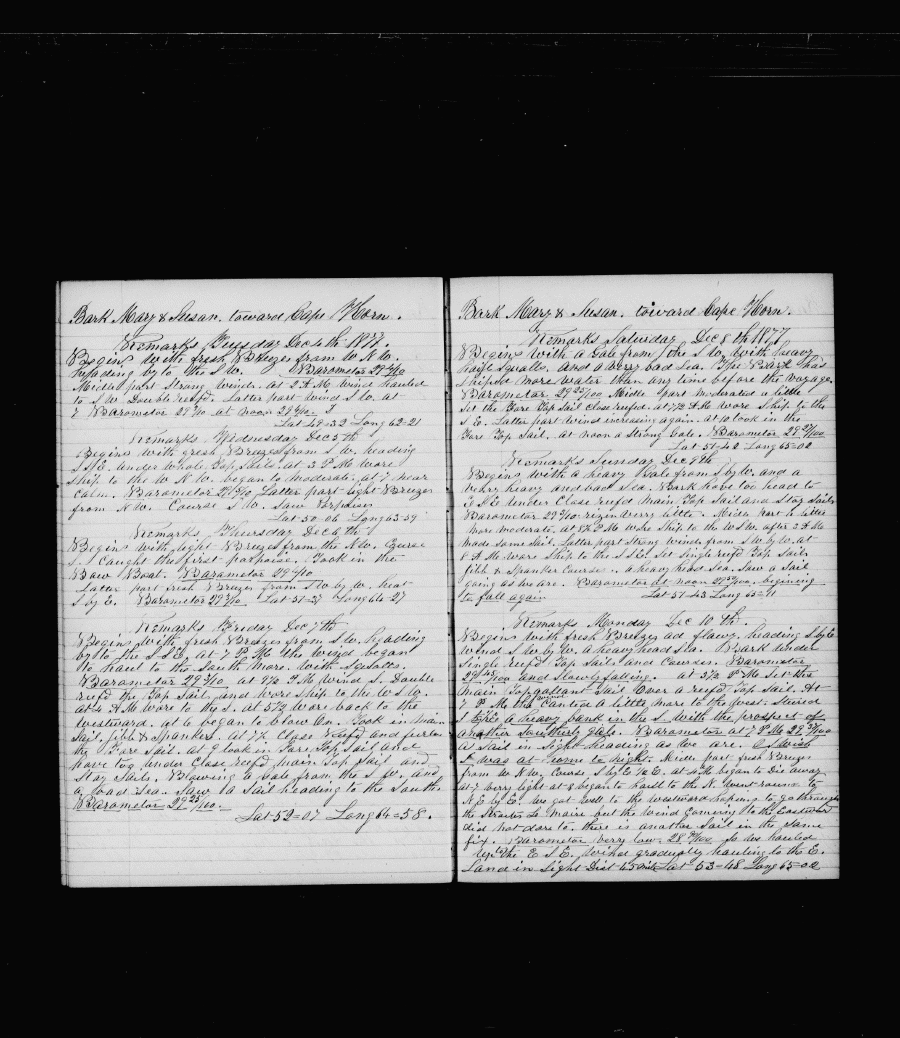 Bark Mary & Susan. toward Cape Horn.
Remarks Tuesday Dec 4th 1877.
Begins with fresh Breezes from W N W.
heading by to the S W. Barometer 29
Middle part Strong winds. at 2 A M wind hauled
to S W. Double reefd. Latter part wind S W. at
7 Barometer 29 at noon 29
Lat 49=32 Long 62-21
Remarks Wednesday Dec 5th
Begins with fresh Breezes from S W. heading
S S E. under whole Top Sails at 3 P Mo wore
Ship to the W N W. began to moderate. at 7 near
calm. Barometer 29 Latter part light Breezes
from N W. Course S W. Saw
Lat-50-06 Long 63-39
Remarks Thursday Dec 6th
Begins with light Breezes from the N W. Course
S. Caught the first porpoise. Took in the
Bow Boat. Barometer 29
Latter part fresh Breezes from S W by W. heat
S by E. Barometer 29 Lat-51-37 Long 64-27
Remarks Friday Dec 7th
Begins with fresh Breezes from S W. heading
by to the S S E. at 7 P M the wind began
to haul to the South more. with Squalls.
Barometer 29 at 9½ P M wind S. Double
reefd the Top Sail and wore Ship to the W S W.
at 4 A M wore to the S. at 5½ wore back to the
westward. at 6 began to blow on. Took in main
Sail, jibb & Spankers. At 7½ Close reefd and furled
the Fore Sail. at 9 took in Fore Top Sail and
hove too under close reefd main Top Sail and
Stay Sails. Blowing a Gale from the S W. and
a bad Sea. Saw a Sail heading to the South
Barometer 29 25/100.
Lat-52=07 Long 64=58.
Bark Mary & Susan. toward Cape Horn.
Remarks Saturday Dec 8th 1877
Begins with a Gale from the S W. with heavy
hail Squalls. and a very bad Sea. The Bark has
Shiped more water than any time before the voyage.
Barometer. 29 25/100 Middle part moderated a little
Set the Fore Top Sail Close reefd. at 7½ A M wore Ship to the
S E. Latter part wind increasing again. at 10 took in the
Fore Top Sail, at noon a strong Gale. Barometer 29
Lat 51-42 Long 65=02
Remarks Sunday Dec 9th
Begins with a heavy Gale from S by W. and a
very heavy and bad Sea. Bark hove too head to
E S E under Close reefd main Top Sail and Stay Sails
Barometer 29 very little. Middle part a little
more moderate. at 8½ P M wore Ship to the W S W. after 2 A M
made Some Sail. Latter part Strong winds from S W by W. at
8 A M wore Ship to the S S E. Set Single reefd Top Sails
jibb & Spanker Course. a heavy head Sea. Saw a Sail
going as we are. Barometer at noon 29 begining
to fall again Lat 51-43 Long 65=11
Remarks Monday Dec 10th.
Begins with fresh Breezes ad flawy. heading S by E
wind S W by W. a heavy head Sea. Bark under
Single reefd Top Sails and Courses. Barometer
29 and Slowly falling. at 3½ P M Set the
main Topgallant Sail Over a reefd Top Sail. At
7 P M the wind canted a little more to the west. Steered
S a heavy bank in the S. with the prospect of
another Southerly Gale. Barometer at 7 P M 29
a Sail in Sight heading as we are. O I wish
I was at Home to night. Middle part fresh Breezes
from W N W. Course S by E ½ E. at 4 A M began to Die away
at 7 very light at 8 began to haul to the N. went round to
N E by E. we got well to the westward hoping to go through
the Straits Le Maire but the wind coming to the Eastward
did not dare to. there is another Sail in the Same
fix. Barometer very low. 28 So we hauled
up the E S E. wind gradually hauling to the E.
Land in Sight Dist 65 mile Lat 53-48 Long 65=02